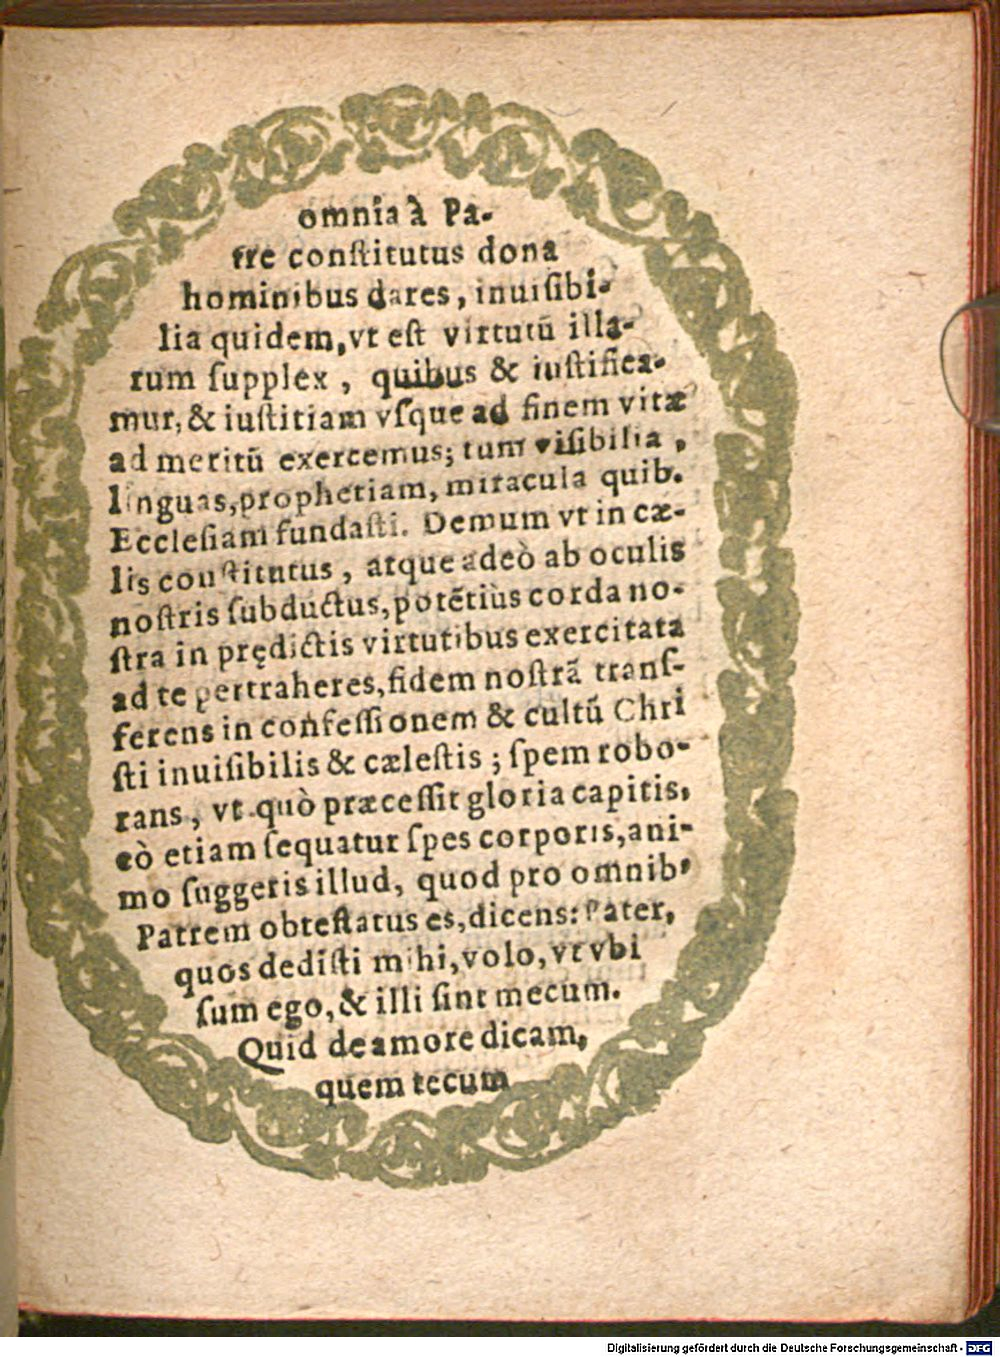 omnia à Pa-
tre conſtitutus dona
hominibus dares, inuiſibi-
lia quidem, vt eſt virtutū illa-
rum ſupplex, quibus & iuſtifica-
mur, & iuſtitiam vſque ad finem vitæ
ad meritū exercemus; tum viſibilia,
linguas, prophetiam, miracula quib.
Eccleſiam fundaſti. Demum vt in cæ-
lis conſtitutus, atque adeò ab oculis
noſtris ſubductus, potētiùs corda no-
ſtra in prędictis virtutibus exercitata
ad te pertraheres, fidem noſtrā tranſ-
ferens in confeſſionem & cultū Chri
ſti inuiſibilis & cæleſtis; ſpem robo-
rans, vt quò præceſſit gloria capitis,
eò etiam ſequatur ſpes corporis, ani-
mo ſuggeris illud, quod pro omnib'
Patrem obteſtatus es, dicens: Pater,
quos dediſti mihi, volo, vt vbi
ſum ego, & illi ſint mecum.
Quid de amore dicam,
quem tecum
Digitalisierung gefördert durch die Deutsche Forschungsgemeinschaft - DFG